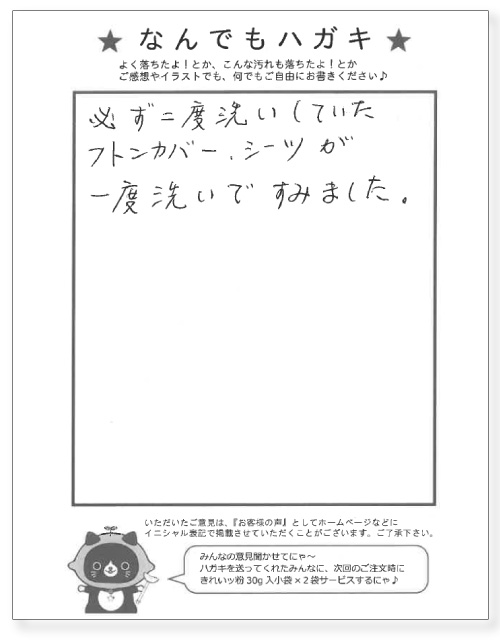 ★なんでもハガキ★
よく落ちたよ！とか、こんな汚れも落ちたよ！とか
ご感想やイラストでも、何でもご自由にお書きください♪
必ず二度洗いしていた
フトンカバー、シーツが
一度洗いですみました。
いただいたご意見は、『お客様の声』としてホームページなどに
イニシャル表記で掲載させていただくことがございます。ご了承下さい。
みんなの意見聞かせてにゃ～
ハガキを送ってくれたみんなに、次回のご注文時に
きれいッ粉30g入小袋×2袋サービスするにゃ♪